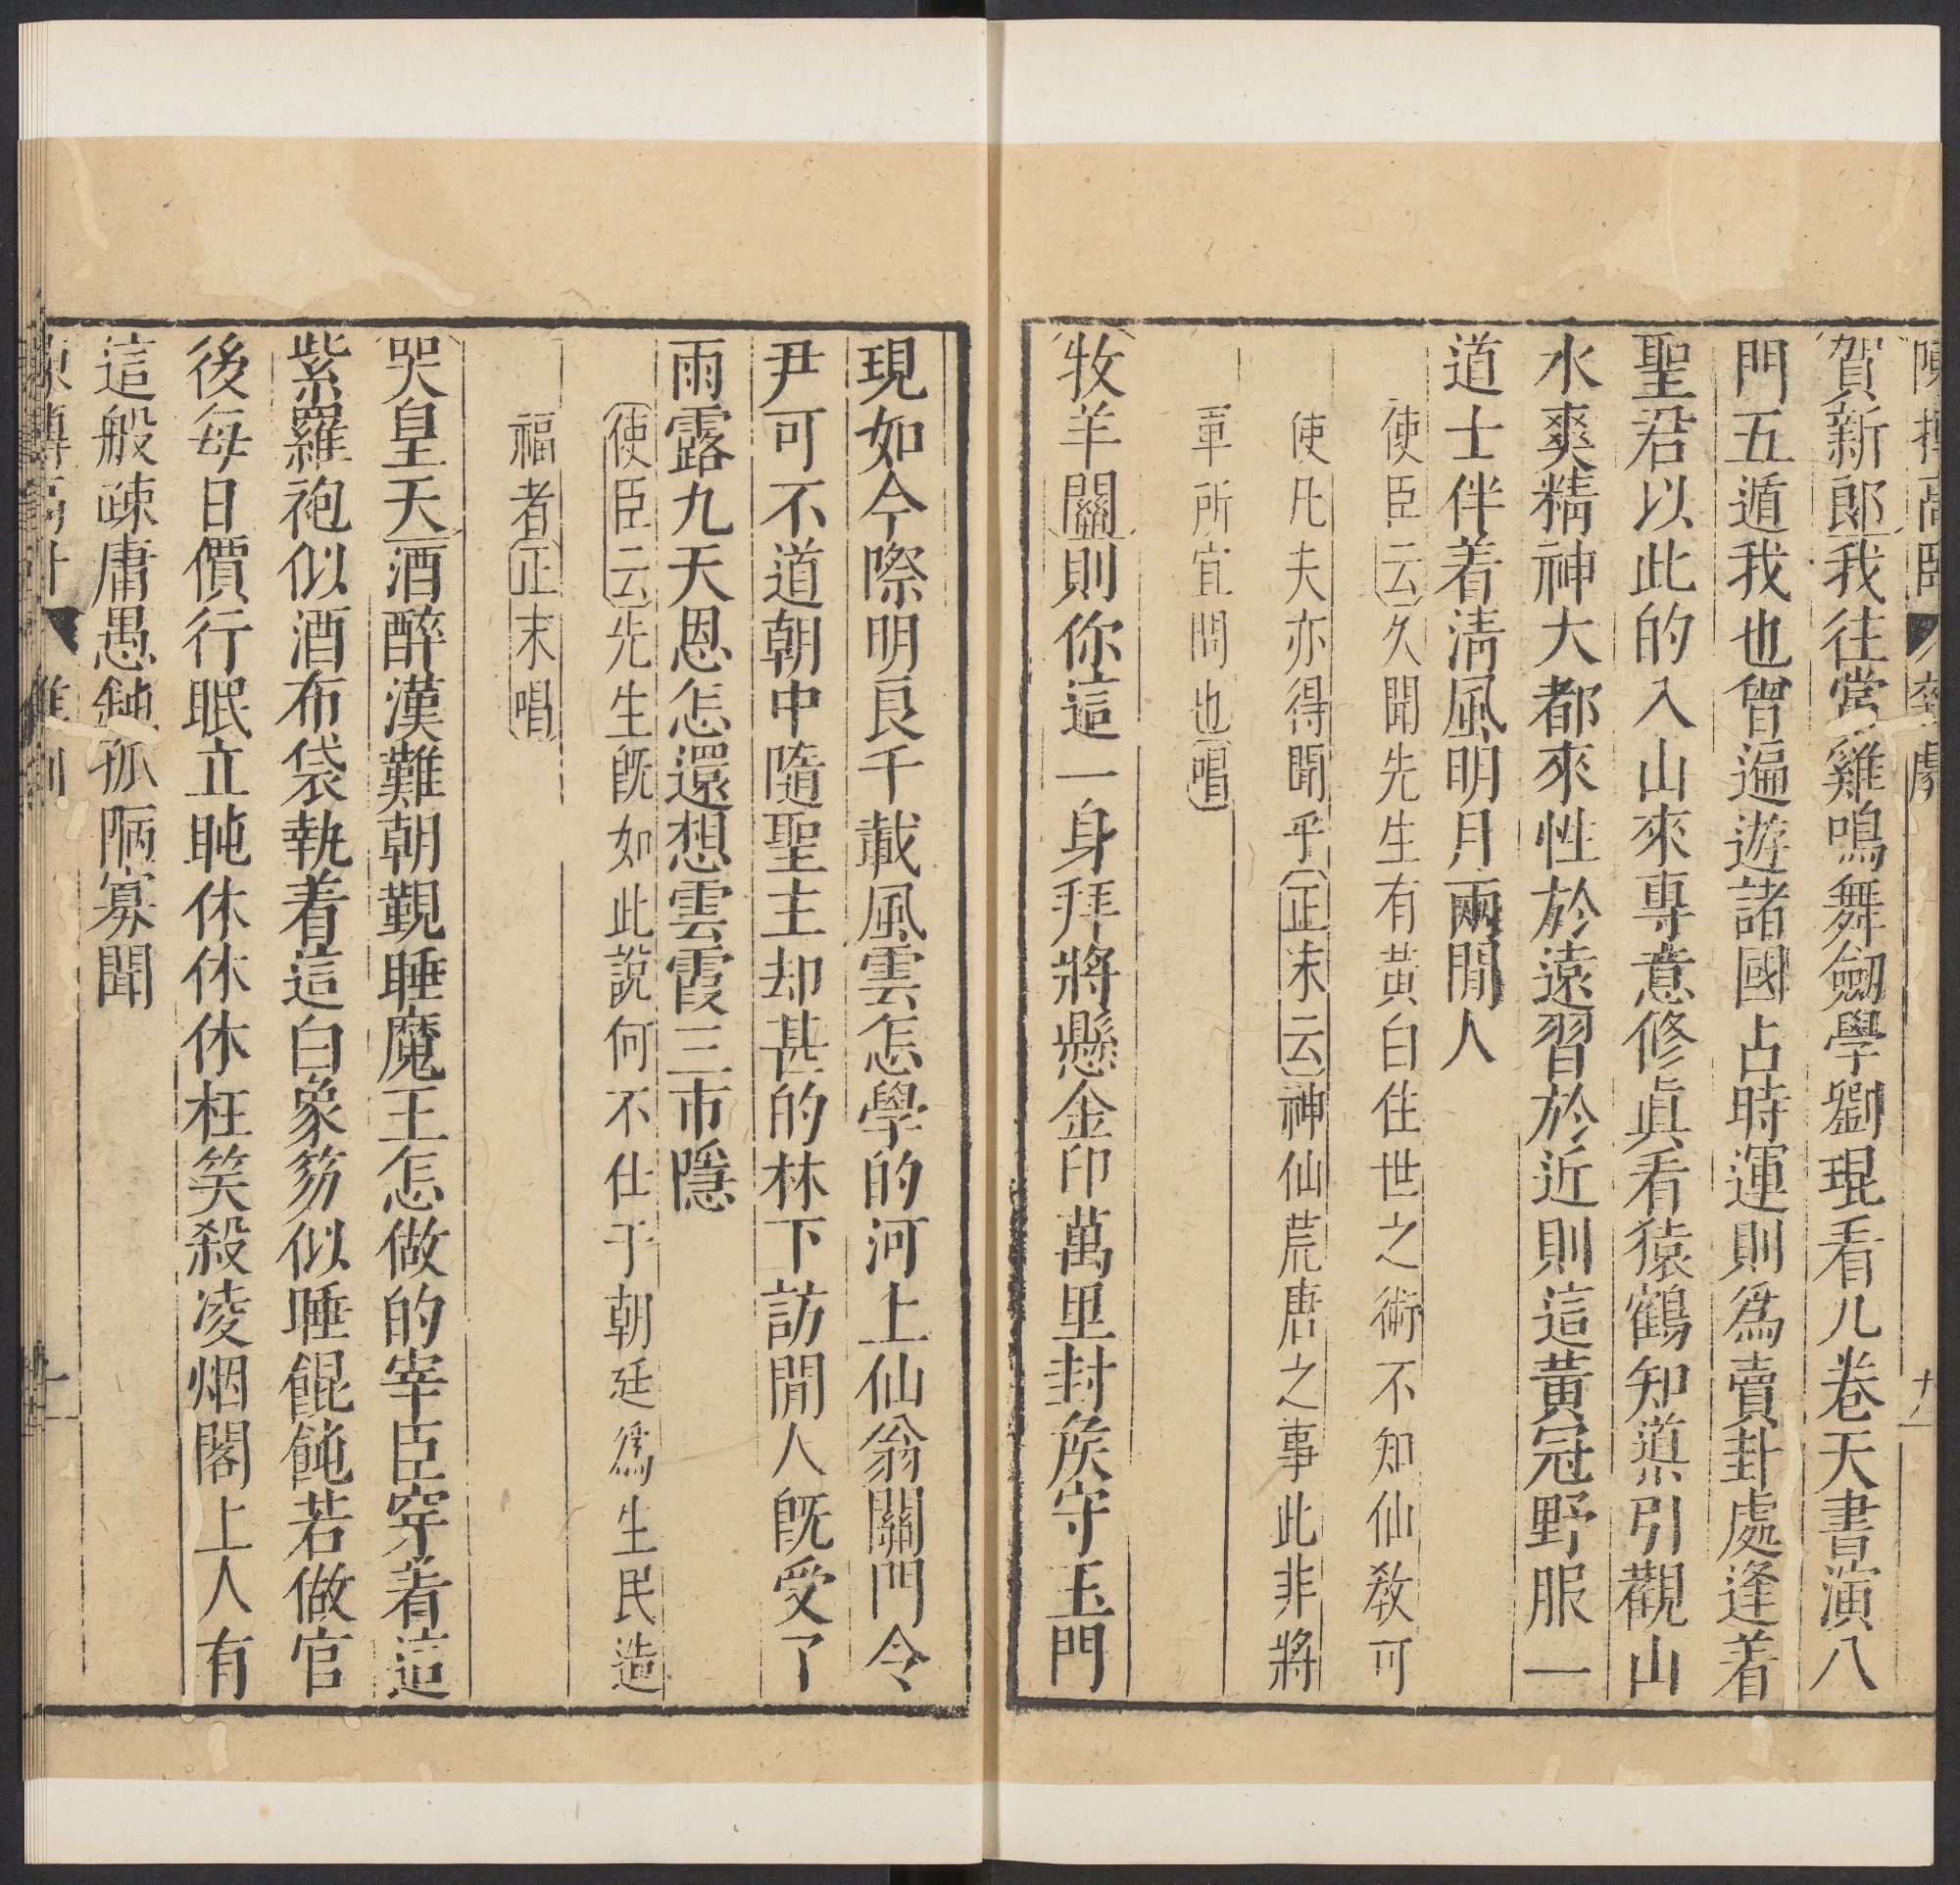 陳摶高臥 雜劇 九
賀新郎我往常雞鳴舞劒學劉琨看儿卷天書演八
門五遁我也曾遍遊諸國占時運則爲賣卦處逢着
聖君以此的入山來專意修眞看猿鶴知導引觀山
水爽精神大都來性於遠習於近則這黃冠野服一
道士伴着淸風明月兩閒人
使臣云久聞先生有黃白住世之術不知仙敎可
使凡夫亦得聞乎正末云神仙荒唐之事此非將
軍所宜問也唱
牧羊關則你這一身拜將懸金印萬里封矦守玉門
現如今際明良千載風雲怎學的河上仙翁關門令
尹可不道朝中隨聖主却甚的林下訪閒人旣受了
雨露九天恩怎還想雲霞三市隱
使臣云先生旣如此說何不仕于朝廷爲生民造
福者正末唱
哭皇天酒醉漢難朝覲睡魔王怎做的宰臣穿着這
紫羅袍似酒布袋執着這白象笏似睡餛飩若做官
後每日價行眠立盹休休休枉笑殺凌烟閣上人有
這般疎庸愚鈍孤陋寡聞